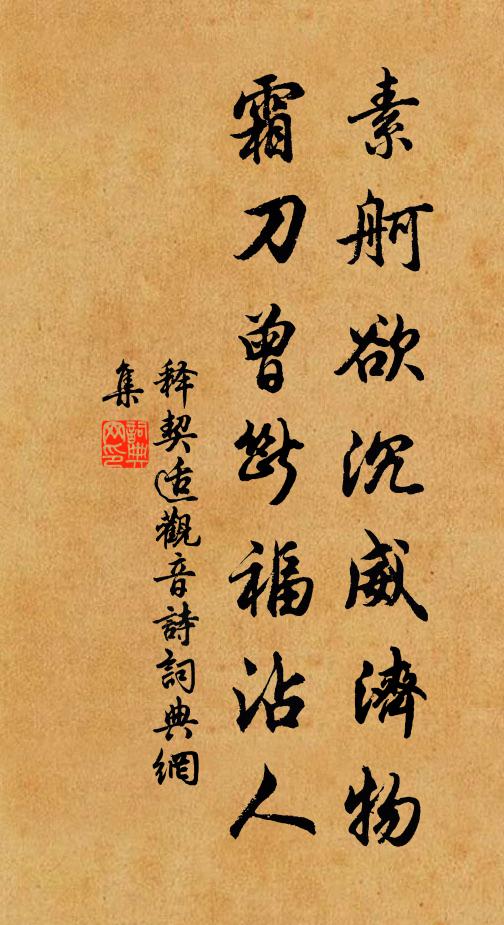 素舸欲沉威濟物
霜刀曾斷福沾人
释契适觀音詩詞典網
集
詞典網印